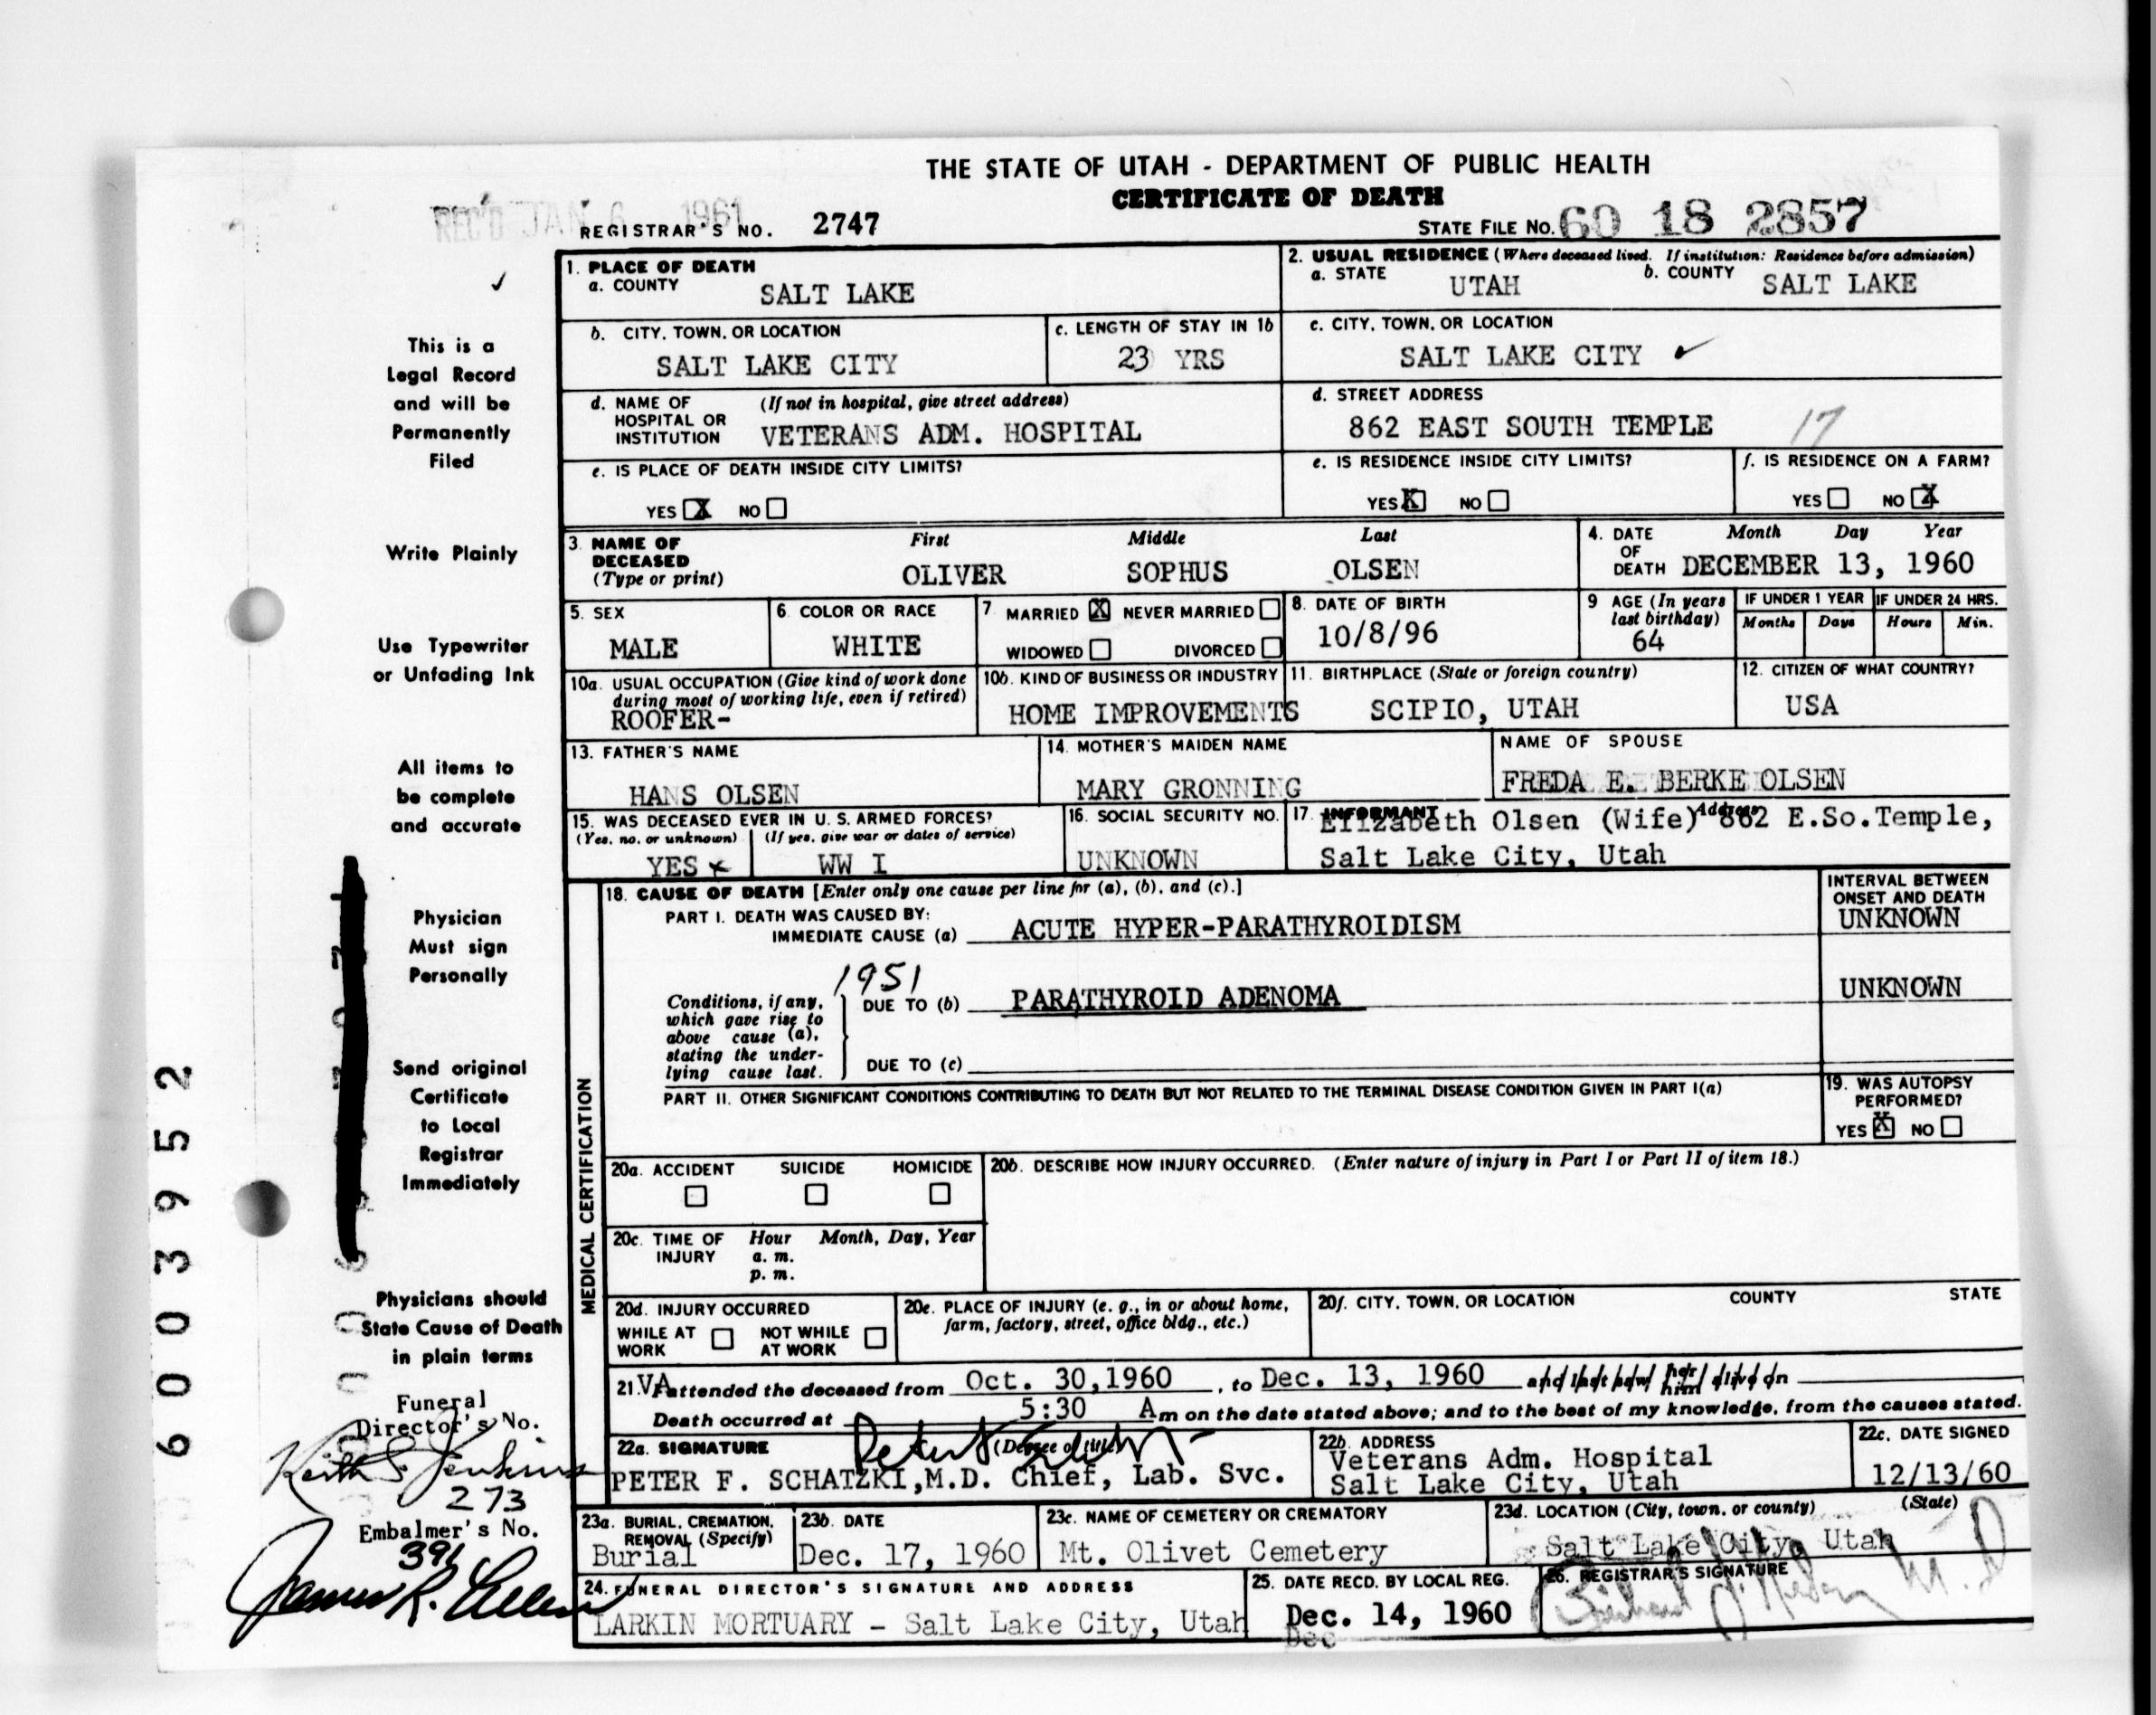 THE STATE OF UTAH - DEPARTMENT OF PUBLIC HEALTH
CERTIFICATE OF DEATH
REC'D JAN 6 1961
REGISTRAR'S NO. 2747
STATE FILE NO. 60 18 2857
1. PLACE OF DEATH
a. COUNTY SALT LAKE
2. USUAL RESIDENCE (Where deceased lived. If institution: Residence before admission)
a. STATE UTAH b. COUNTY SALT LAKE
b. CITY, TOWN, OR LOCATION
SALT LAKE CITY
c. LENGTH OF STAY IN 1b
23 YRS
c. CITY, TOWN, OR LOCATION
SALT LAKE CITY
d. NAME OF HOSPITAL OR INSTITUTION (If not in hospital, give street address)
VETERANS ADM. HOSPITAL
d. STREET ADDRESS
862 EAST SOUTH TEMPLE 17
e. IS PLACE OF DEATH INSIDE CITY LIMITS?
YES X NO
e. IS RESIDENCE INSIDE CITY LIMITS?
YES X NO
f. IS RESIDENCE ON A FARM?
YES NO X
3. NAME OF DECEASED (Type or print)
First Middle Last
OLIVER SOPHUS OLSEN
4. DATE OF DEATH Month Day Year
DECEMBER 13, 1960
5. SEX
MALE
6. COLOR OR RACE
WHITE
7. MARRIED X NEVER MARRIED
WIDOWED DIVORCED
8. DATE OF BIRTH
10/8/96
9 AGE (In years last birthday)
64
IF UNDER 1 YEAR IF UNDER 24 HRS.
Months Days Hours Min.
10a. USUAL OCCUPATION (Give kind of work done during most of working life, even if retired)
ROOFER-
10b. KIND OF BUSINESS OR INDUSTRY
HOME IMPROVEMENTS
11. BIRTHPLACE (State or foreign country)
SCIPIO, UTAH
12. CITIZEN OF WHAT COUNTRY?
USA
13. FATHER'S NAME
HANS OLSEN
14. MOTHER'S MAIDEN NAME
MARY GRONNING
NAME OF SPOUSE
FREDA E. BERKE OLSEN
15. WAS DECEASED EVER IN U. S. ARMED FORCES?
(Yes, no, or unknown) (If yes, give war or dates of service)
YES WW I
16. SOCIAL SECURITY NO.
UNKNOWN
17. INFORMANT Address
Elizabeth Olsen (Wife) 862 E.So.Temple,
Salt Lake City, Utah
MEDICAL CERTIFICATION
18. CAUSE OF DEATH [Enter only one cause per line for (a), (b), and (c).]
PART I. DEATH WAS CAUSED BY:
IMMEDIATE CAUSE (a) ACUTE HYPER-PARATHYROIDISM
INTERVAL BETWEEN ONSET AND DEATH
UNKNOWN
1951
Conditions, if any, which gave rise to above cause (a), stating the underlying cause last.
DUE TO (b) PARATHYROID ADENOMA
UNKNOWN
DUE TO (c)
PART II. OTHER SIGNIFICANT CONDITIONS CONTRIBUTING TO DEATH BUT NOT RELATED TO THE TERMINAL DISEASE CONDITION GIVEN IN PART I(a)
19. WAS AUTOPSY PERFORMED?
YES X NO
20a. ACCIDENT SUICIDE HOMICIDE
20b. DESCRIBE HOW INJURY OCCURRED. (Enter nature of injury in Part I or Part II of item 18.)
20c. TIME OF INJURY Hour Month, Day, Year
a. m.
p. m.
20d. INJURY OCCURRED
WHILE AT WORK NOT WHILE AT WORK
20e. PLACE OF INJURY (e. g., in or about home, farm, factory, street, office bldg., etc.)
20f. CITY, TOWN, OR LOCATION COUNTY STATE
21. VA attended the deceased from Oct. 30,1960, to Dec. 13, 1960 and last saw her him alive on
Death occurred at 5:30 Am on the date stated above; and to the best of my knowledge, from the causes stated.
22a. SIGNATURE (Degree or title)
PETER F. SCHATZKI,M.D. Chief, Lab. Svc.
22b. ADDRESS
Veterans Adm. Hospital
Salt Lake City, Utah
22c. DATE SIGNED
12/13/60
23a. BURIAL, CREMATION, REMOVAL (Specify)
Burial
23b. DATE
Dec. 17, 1960
23c. NAME OF CEMETERY OR CREMATORY
Mt. Olivet Cemetery
23d. LOCATION (City, town, or county) (State)
Salt Lake City, Utah
24. FUNERAL DIRECTOR'S SIGNATURE AND ADDRESS
LARKIN MORTUARY - Salt Lake City, Utah
25. DATE RECD. BY LOCAL REG.
Dec. 14, 1960
Dec
26. REGISTRAR'S SIGNATURE
M.D
This is a
Legal Record
and will be
Permanently
Filed
Write Plainly
Use Typewriter
or Unfading Ink
All items to
be complete
and accurate
Physician
Must sign
Personally
Send original
Certificate
to Local
Registrar
Immediately
Physicians should
State Cause of Death
in plain terms
Funeral
Director's No.
Keith S. Jenkins
273
Embalmer's No.
391
James R.
6003952